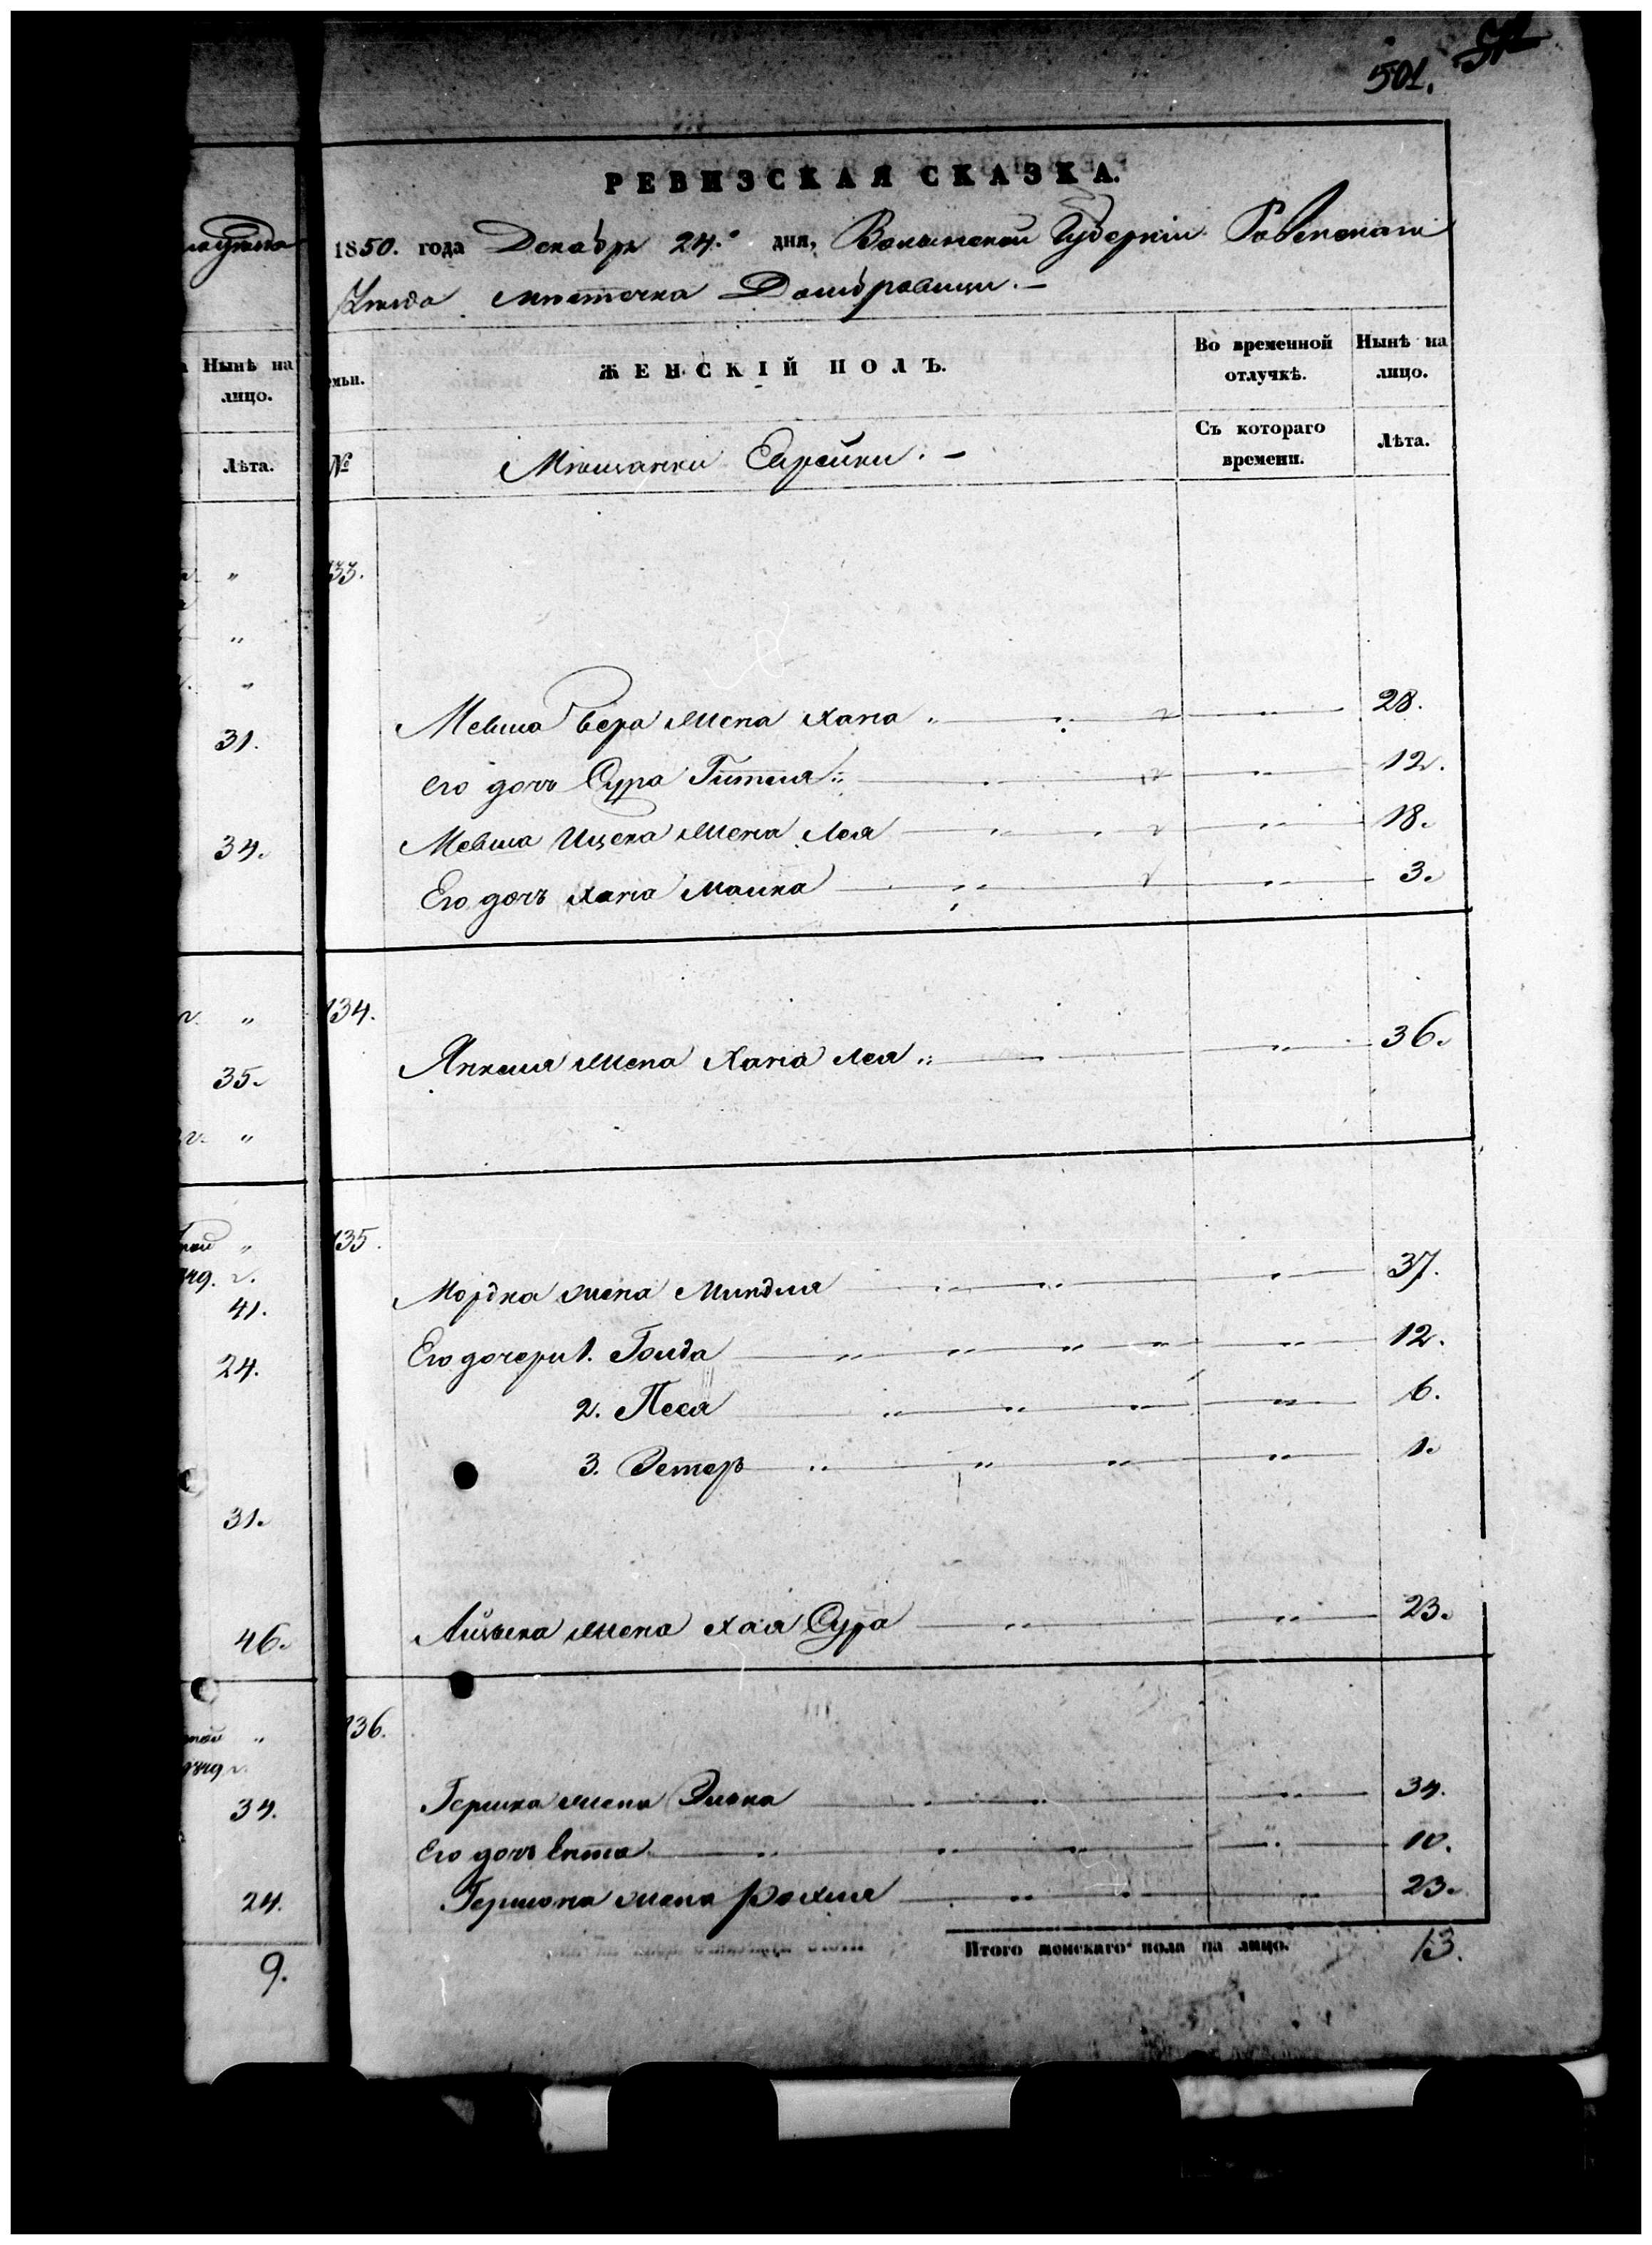 501.
РЕВИЗСКАЯ СКАЗКА.
1850. года Декабря 24.го дня, Волынской Губерніи Ровенскаго
Уѣзда мѣстечка Домбровицы. —
Нынѣ на лицо.
Лѣта.
№
ЖЕНСКІЙ ПОЛЪ.
Во временной отлучкѣ.
Нынѣ на лицо.
Мѣщанки Еврейки. —
Съ котораго времени.
Лѣта.
" 
33.
"
"
31.
Мевша Бера жена Хана 28.
его дочь Сура Гитля 12.
34.
Мевша Ицека жена Лея 18.
Его дочь Хана Малка 3.
" 134.
35.
Янкеля жена Хана Лея 36.
"
" 135.
41.
Мордка жена Миндля 37.
24.
Его дочери 1. Голда 12.
2. Песя 6.
3. Эстеръ 1.
31.
46.
жена Хая Сура 23.
136.
"
34.
Гершка жена Элька 34.
Его дочь Ента 10.
24.
Гершона жена Рахля 23.
9.
Итого женскаго пола на лицо. 13.